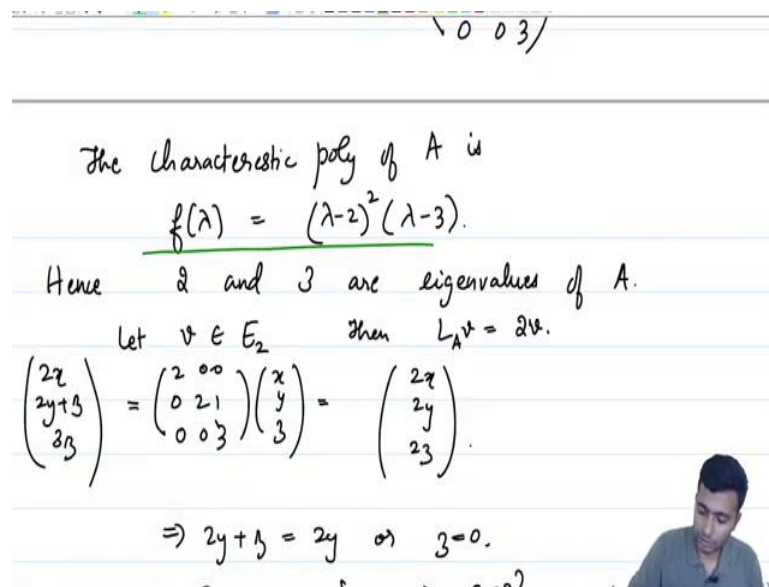 0 0 3)
The characterestic poly of A is
f(λ) = (λ-2)² (λ-3).
Hence 2 and 3 are eigenvalues of A.
Let v ∈ E₂ Then L_A v = 2v.
(2x 2y+z 3z) = (2 0 0 0 2 1 0 0 3) (x y z) = (2x 2y 2z).
⇒ 2y+z = 2y or z=0.